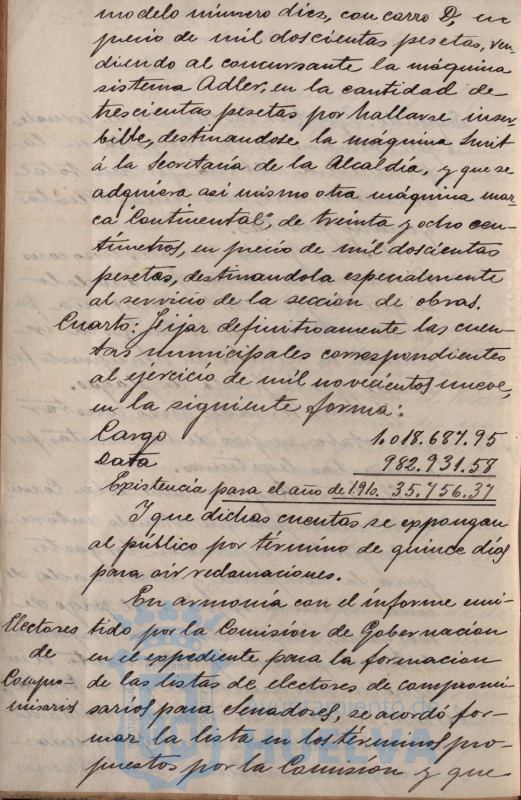 modelo número diez, con carro D, en
precio de mil doscientas pesetas, ven-
diendo al concursante la máquina
sistema Adler, en la cantidad de
trescientas pesetas por hallarse inser-
bible, destinandose la máquina Smit
á la Secretaría de la Alcaldía, y que se
adquiera asi mismo otra máquina mar-
ca "Continental", de treinta y ocho cen-
tímetros, en precio de mil doscientas
pesetas, destinandola especialmente
al servicio de la sección de obras.
Cuarto: Fijar definitivamente las cuen-
tas municipales correspondientes
al ejercicio de mil novecientos nueve,
en la siguiente forma:
Cargo 1.018.687.95
Data 982.931.58
Existencia para el año de 1.910. 35.756.37
Y que dichas cuentas se expongan
al público por término de quince días
para oir reclamaciones.
En armonía con el informe emi-
Electores
de
Compro-
misarios
tido por la Comisión de Gobernacion
en el expediente para la formacion
de las listas de electores de compromi-
sarios para Senadores, se acordó for-
mar la lista en los términos pro-
puestos por la Comisión y que
HUELVA